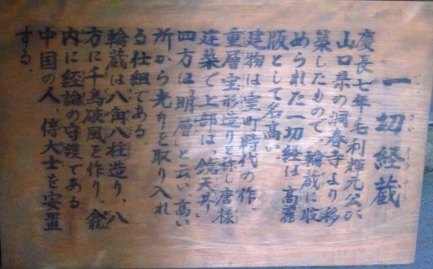 一切経蔵
慶長七年毛利輝元公が、
山口県の洞春寺より移
築したもので、輪蔵に収
められた一切経は高麗
版として名高い。
建物は室町時代の作、
重層宝形造りと称し唐様
建築で上部は鏡天井、
四方は「明層」と云い高い
所から光りを取り入れ
る仕組である。
輪蔵は八角八柱造り、八
方に千鳥破風を作り、龕
内に経論の守護である
中国の人 傅大士を安置
する。